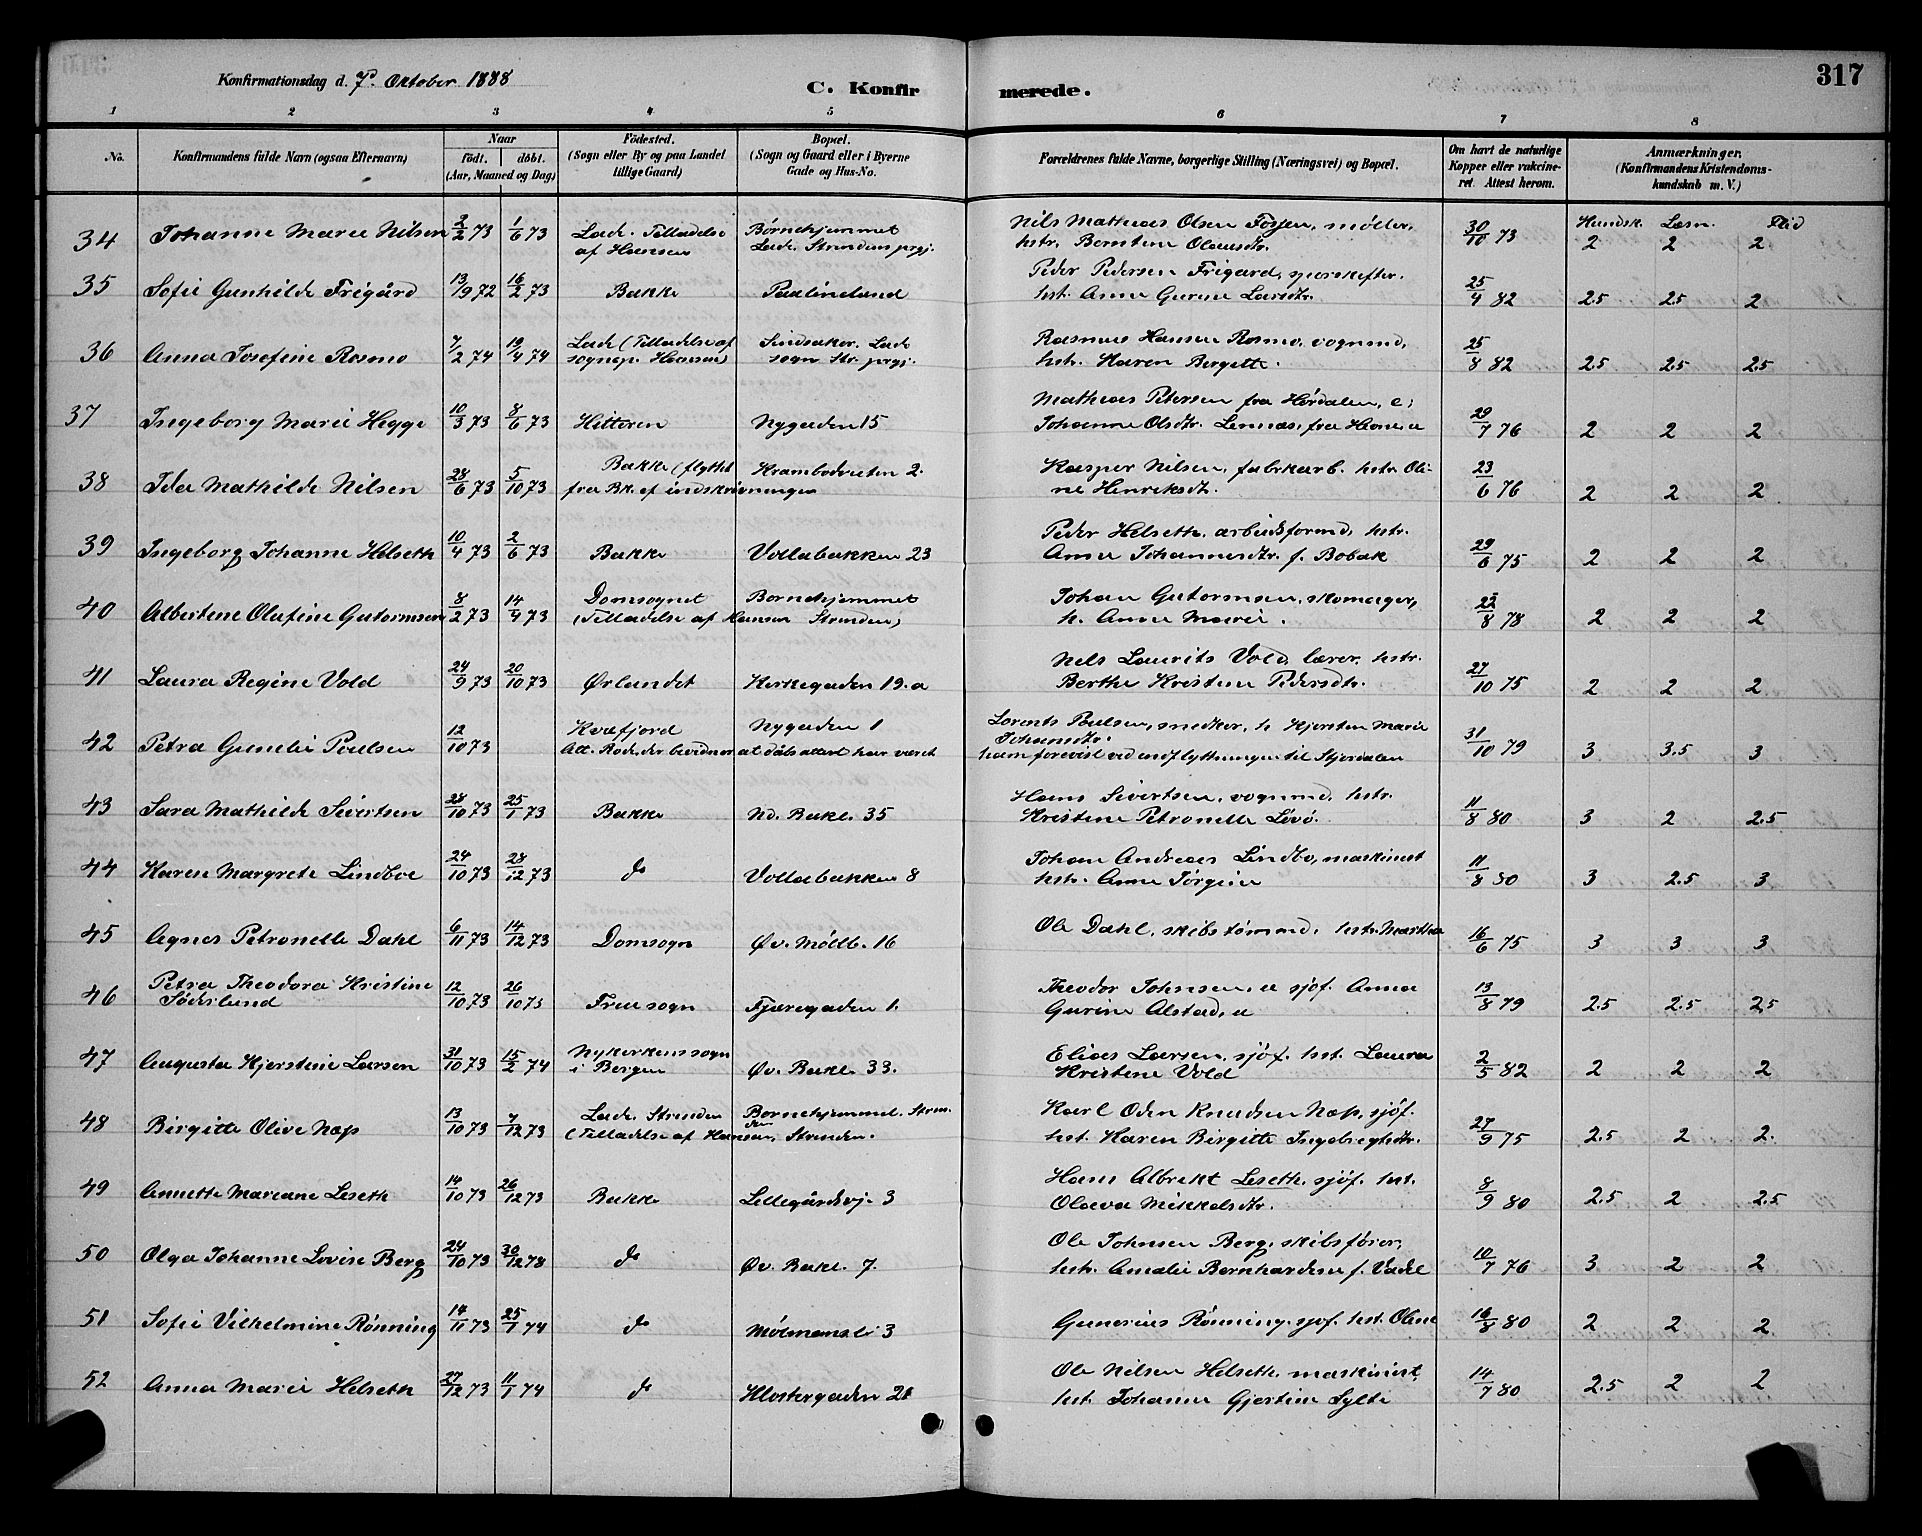 317
Konfirmationsdag d. 7de Oktober 1888
C. Konfirmerede.
1 2 3 4 5 6 7 8
No.
Konfirmandens fulde Navn (ogsaa Efternavn)
Naar
födt. döbt.
(Aar, Maaned og Dag)
Födested.
(Sogn eller By og paa Landet
tillige Gaard)
Bopæl.
(Sogn og Gaard eller i Byerne
Gade og Hus-No.
Forældrenes fulde Navne, borgerlige Stilling (Næringsvei) og Bopæl.
Om havt de naturlige
Kopper eller vakcine-
ret. Attest herom.
Anmærkninger.
(Konfirmandens Kristendoms-
kundskab m. V.)
Kundsk. Læsn. Flid
34 Johanne Marie Nilsen 2/2 73 1/6 73 Lade. Tilladelse af Hansen Børnehjemmet Lade. Strindens prgj. Nils Mathias Olsen Fosjen, møller, hstr. Berntine Olausdtr. 30/10 73 2 2 2
35 Sofie Gunhilde Frigård 13/9 72 16/2 73 Bakke Paulinelund Peder Pedersen Frigaard, hst. Anne Gurine Larsdtr. 25/4 82 2.5 2.5 2
36 Anna Josefine Rosmo 7/2 74 19/4 74 Lade (Tilladelse af sognepr. Hansen) Sindsaker. Lade sogn Str. prgj. Rasmus Hansen Rosmo, vognmd, hst. Karen Bergitte. 25/8 82 2.5 2.5 2.5
37 Ingeborg Marie Hegge 10/3 73 8/6 73 Hitteren Nygaden 15 Mathias Petersen fra Hørdalen, e; Johanne Olsdtr. Lennæs, fra Hevne, e 29/7 76 2 2 2
38 Ida Mathilde Nilsen 28/6 73 5/10 73 Bakke (flyttet fra Bk. ef indskrivningen Krambodveiten 2. Kasper Nilsen, fabrkarb. hstr. Oline Henriksdtr. 23/6 76 2 2 2
39 Ingeborg Johanne Helseth 10/4 73 2/6 73 Bakke Vollabakken 23 Peder Helseth, arbeidsformd, hstr. Anne Johannesdtr. f. Bobak 29/6 75 2 2 2
40 Albertine Olufine Gutormsen 8/2 73 14/4 73 Domsognet (Tilladelse af Hansen Strinden) Børnehjemmet Johan Gutormsen, skomager, h. Anne Marie. 22/8 78 2 2 2
41 Laura Regine Vold 24/9 73 20/10 73 Ørlandet Kirkegaden 19.a Nels Laurits Vold, lærer, hstr. Berthe Kristine Pedersdtr. 27/10 75 2 2 2
42 Petra Gunelie Poulsen 12/10 73 Kvæfjord Nygaden 1 Att. Rode der bevidner at dåbsattest har været Lorents Poulsen, snedker, h Kjersten Marie Johansdtr. ham forevist ved indflytningen til Stjørdalen 31/10 79 3 3.5 3
43 Sara Mathilde Sivertsen 28/10 73 25/1 73 Bakke Nd. Bakl. 35 Hans Sivertsen, vognmd, hstr. Kristine Petronelle Løvø. 11/8 80 3 2 2.5
44 Karen Margrete Lindboe 24/10 73 28/12 73 do Vollabakken 8 Johan Andreas Lindbo, maskinist hst. Anne Jørgine 11/8 80 3 2.5 3
45 Agnes Petronelle Dahl 6/11 73 14/12 73 Domsogn Øv. Möllb. 16 Ole Dahl, skibstømmd, hstr. Martha 16/6 75 3 3 3
46 Petra Theodora Kristine Söderlund 12/10 73 26/10 75 Fruesogn Fjæregaden 1. Theodor Johnsen, e sjöf. Anna Gurine Alstad, e 13/8 79 2.5 2.5 2.5
47 Augusta Kjerstine Larsen 31/10 73 15/2 74 Nykirkens sogn i Bergen Øv. Bakl. 33. Elias Larsen, sjöf. hst. Laura Kristine Vold 2/5 82 2 2 2
48 Birgitte Olive Næss 13/10 73 7/12 73 Lade. Strinden (Tilladelse af Hansen, Strinden. Børnehjemmet. Strinden Karl Oden Knudsen Næss, sjöf. hst. Karen Birgitte Ingebrigtsdtr. 27/9 75 2.5 2 2.
49 Annette Mariane Leseth 14/10 73 26/12 73 Bakke Lillegårdsvj. 3 Hans Albrekt Leseth, sjöf. hst. Olava Mikkelsdtr. 8/9 80 2.5 2 2.5
50 Olga Johanne Lovise Berg 24/10 73 30/12 78 do Øv. Bakl. 7. Ole Johnsen Berg, skibsfører, hstr. Amalie Bernhardine f. Vadel 10/7 76 3 2 2
51 Sofie Vilhelmine Rønning 14/11 73 25/1 74 do Mölmannsli 3 Gunerius Rønning, sjöf. hst. Oline 16/8 80 2 2 2
52 Anna Marie Helseth 27/12 73 11/1 74 do Klostergaden 21 Ole Nilsen Helseth, maskinist, hst. Johanne Gjertine Sylte 14/7 80 2.5 2 2